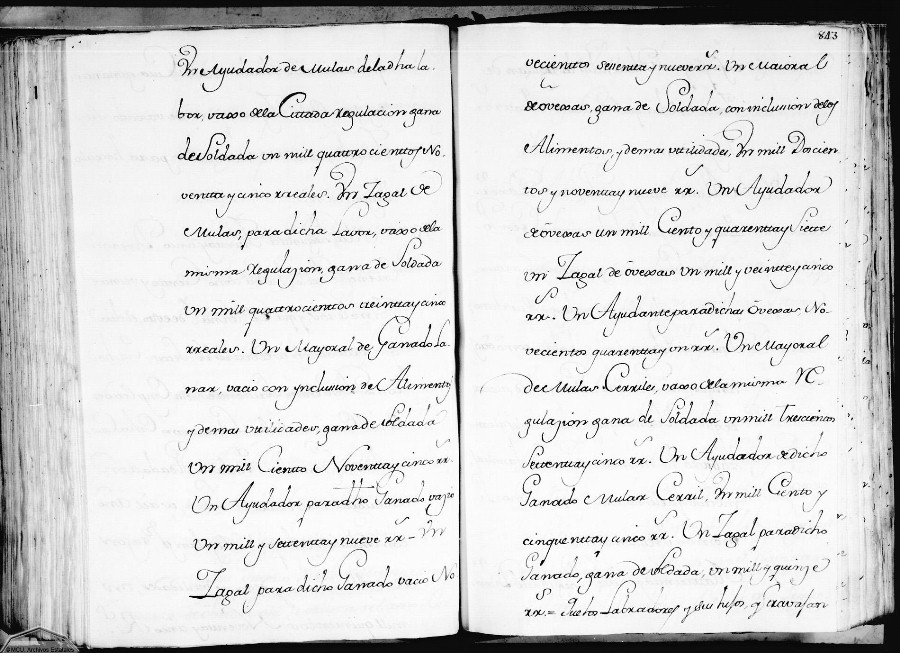 Un Ayudador de Mulas de la dha la-
bor, vaxo de la Cittada Regulacion gana
de Soldada un mill quattrocienttos No-
ventta y cinco rreales. Un Zagal de
Mulas, para dicha Lavor, vaxo de la
misma Regulazion, gana de Soldada
un mill quattrocienttos veintta y cinco
rreales. Un Mayoral de Ganado La-
nar, vacio con Ynclusion de Alimentos
y demas utilidades, gana de soldada
Un mill Ciento Noventta y cinco rrs.
Un Ayudador para dho Ganado vazio
Un mill y settentta y nueve rrs - Un
Zagal para dicho Ganado vacio No
843
vecienttos settentta y nueve rrs. Un Maioral
de ovexas, gana de Soldada, con inclusion de los
Alimentos, y demas utilidades, Un mill Doscien
tos y noventta y nueve rrs. Un Ayudador
de ovexas un mill Ciento y quarentta y Siette
Un Zagal de ovexas Un mill y veintte y cinco
rrs. Un Ayudante para dichas Ovexas, No-
vecientos quarentta y un rrs. Un Mayoral
de Mulas Cerriles, vaxo de la misma Re-
gulazion gana de Soldada un mill Trescientos
Settentta y cinco rrs. Un Ayudador de dicho
Ganado Mular Cerril, Un mill Ciento y
cinquentta y cinco rrs. Un Zagal para dicho
Ganado, gana de soldada, un mill y quinze
rrs. = Labradores y sus hijos, q travajan
©MCU. Archivos Estatales